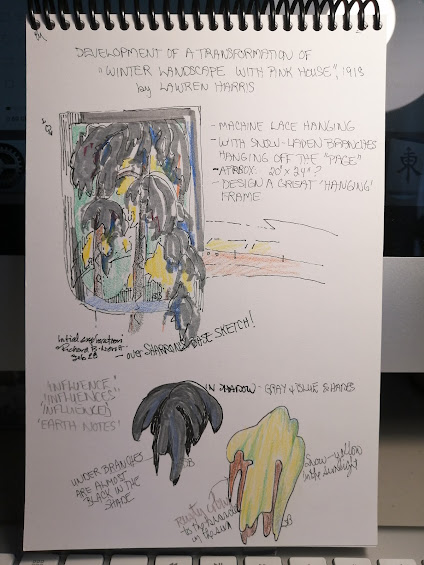 DEVELOPMENT OF A TRANSFORMATION OF
"WINTER LANDSCAPE WITH PINK HOUSE", 1918
by LAWREN HARRIS
- MACHINE LACE HANGING
- WITH SNOW-LADEN BRANCHES
HANGING OFF THE "PAGE"
- APPROX: 20" x 24"?
- DESIGN A GREAT 'HANGING'
FRAME
Initial exploration
Richard
Feb 28
- over SHARRON'S BASE SKETCH!
'INFLUENCE'
'INFLUENCES'
'INFLUENCED'
'EARTH NOTES'
IN SHADOW - GRAY & BLUE SHADES
UNDER BRANCHES
ARE ALMOST
BLACK IN THE
SHADE
SB
Snow-yellow
in the sunlight
Rusty
to the branches
in the sun
SB
東